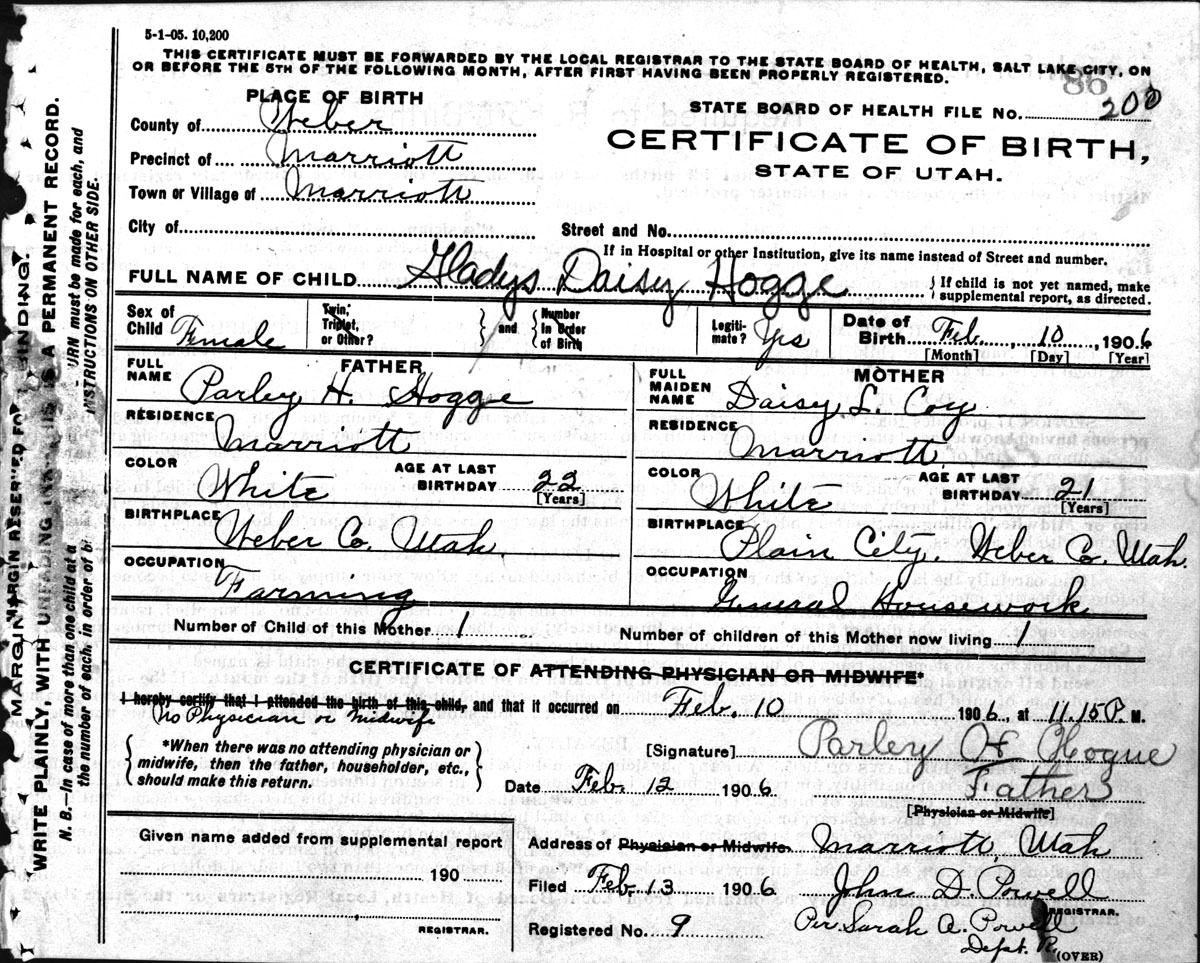 5-1-05. 10,200
THIS CERTIFICATE MUST BE FORWARDED BY THE LOCAL REGISTRAR TO THE STATE BOARD OF HEALTH, SALT LAKE CITY, ON
OR BEFORE THE 5TH OF THE FOLLOWING MONTH, AFTER FIRST HAVING BEEN PROPERLY REGISTERED.
86
PLACE OF BIRTH
STATE BOARD OF HEALTH FILE No. 200
County of Weber
CERTIFICATE OF BIRTH,
Precinct of Marriott
STATE OF UTAH.
Town or Village of Marriott
City of
Street and No.
If in Hospital or other Institution, give its name instead of Street and number.
FULL NAME OF CHILD Gladys Daisy Hogge
If child is not yet named, make
supplemental report, as directed.
Sex of Child Female
Twin, Triplet, or Other?
and
Number in Order of Birth
Legiti-mate? Yes
Date of Birth Feb. 10, 1906
[Month] [Day] [Year]
FATHER
FULL NAME Parley H. Hogge
RESIDENCE Marriott
COLOR White
AGE AT LAST BIRTHDAY 22
[Years]
BIRTHPLACE Weber Co. Utah.
OCCUPATION Farming
MOTHER
FULL MAIDEN NAME Daisy L. Coy
RESIDENCE Marriott
COLOR White
AGE AT LAST BIRTHDAY 21
[Years]
BIRTHPLACE Plain City, Weber Co. Utah.
OCCUPATION General Housework
Number of Child of this Mother 1
Number of children of this Mother now living 1
CERTIFICATE OF ATTENDING PHYSICIAN OR MIDWIFE*
I hereby certify that I attended the birth of this child, and that it occurred on Feb. 10 1906, at 11.15 P. M.
No Physician or Midwife
*When there was no attending physician or
midwife, then the father, householder, etc.,
should make this return.
[Signature] Parley H Hogge
Father
[Physician or Midwife]
Date Feb. 12 1906.
Given name added from supplemental report
190
REGISTRAR.
Address of Physician or Midwife. Marriott, Utah
Filed Feb. 13 1906 John D. Powell
REGISTRAR.
Registered No. 9 Per. Sarah A. Powell
Dept. R.
(OVER)
MARGIN RESERVED FOR BINDING.
WRITE PLAINLY, WITH UNFADING INK—THIS IS A PERMANENT RECORD.
N. B.—In case of more than one child at a
URN must be made for each, and
the number of each, in order of bi
INSTRUCTIONS ON OTHER SIDE.